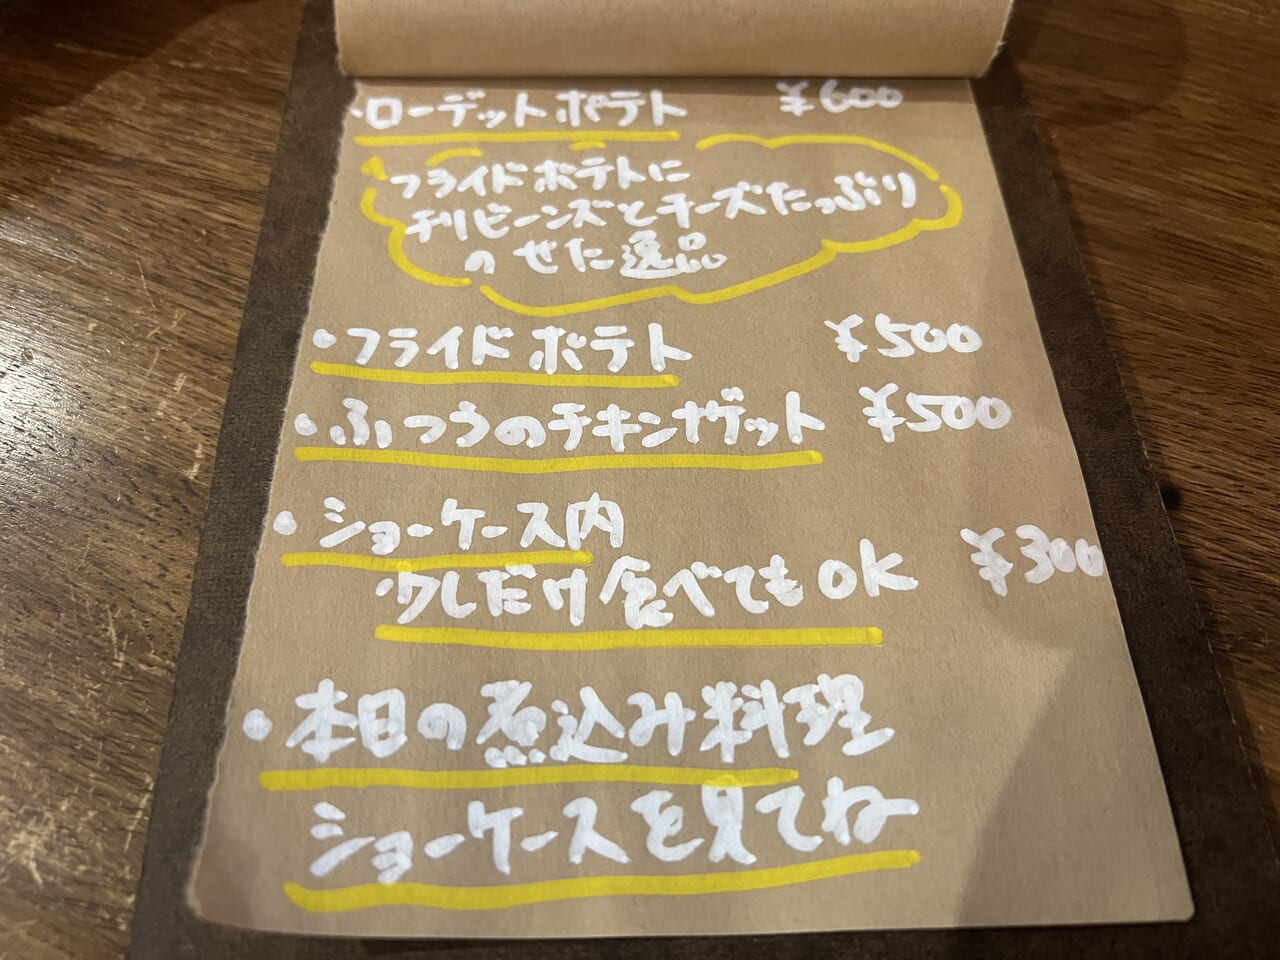 ・ローデットポテト ¥600
フライドポテトに
チリビーンズとチーズたっぷり
のせた逸品
・フライドポテト ¥500
・ふつうのチキンナゲット ¥500
・ショーケース内
少しだけ食べてもOK ¥300
・本日の煮込み料理
ショーケースを見てね